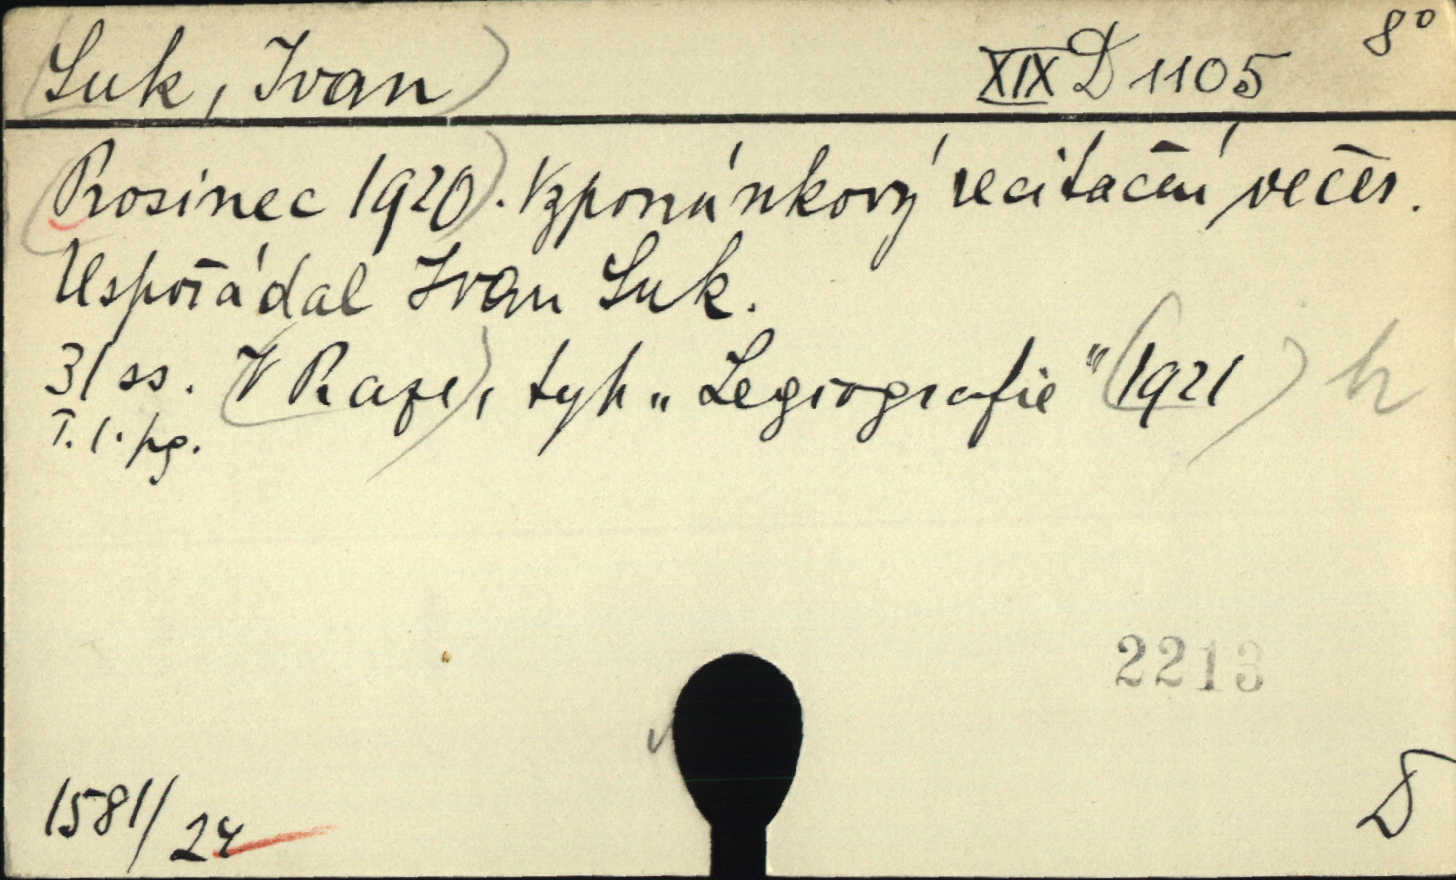 Suk, Ivan
XIX D 1105
8°
Prosinec 1920. Vzpomínkový recitační večer.
Uspořádal Ivan Suk.
31 ss. V Praze, typ. „Legiografie" 1921
T. l. pg.
2213
1581/24
D